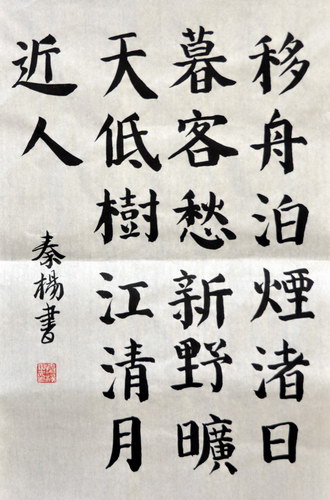 移舟泊煙渚日
暮客愁新野曠
天低樹江清月
近人
秦楊書